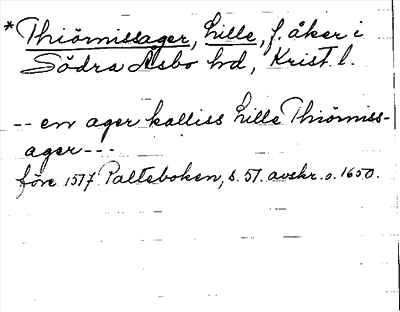 *Thiörnissager, lille, f. åker i
Södra Åsbo hd, Krist. l.
-- en ager kalliss lille Thiörniss-
ager---
före 1517 Palteboken, s. 57. avskr. o. 1650.